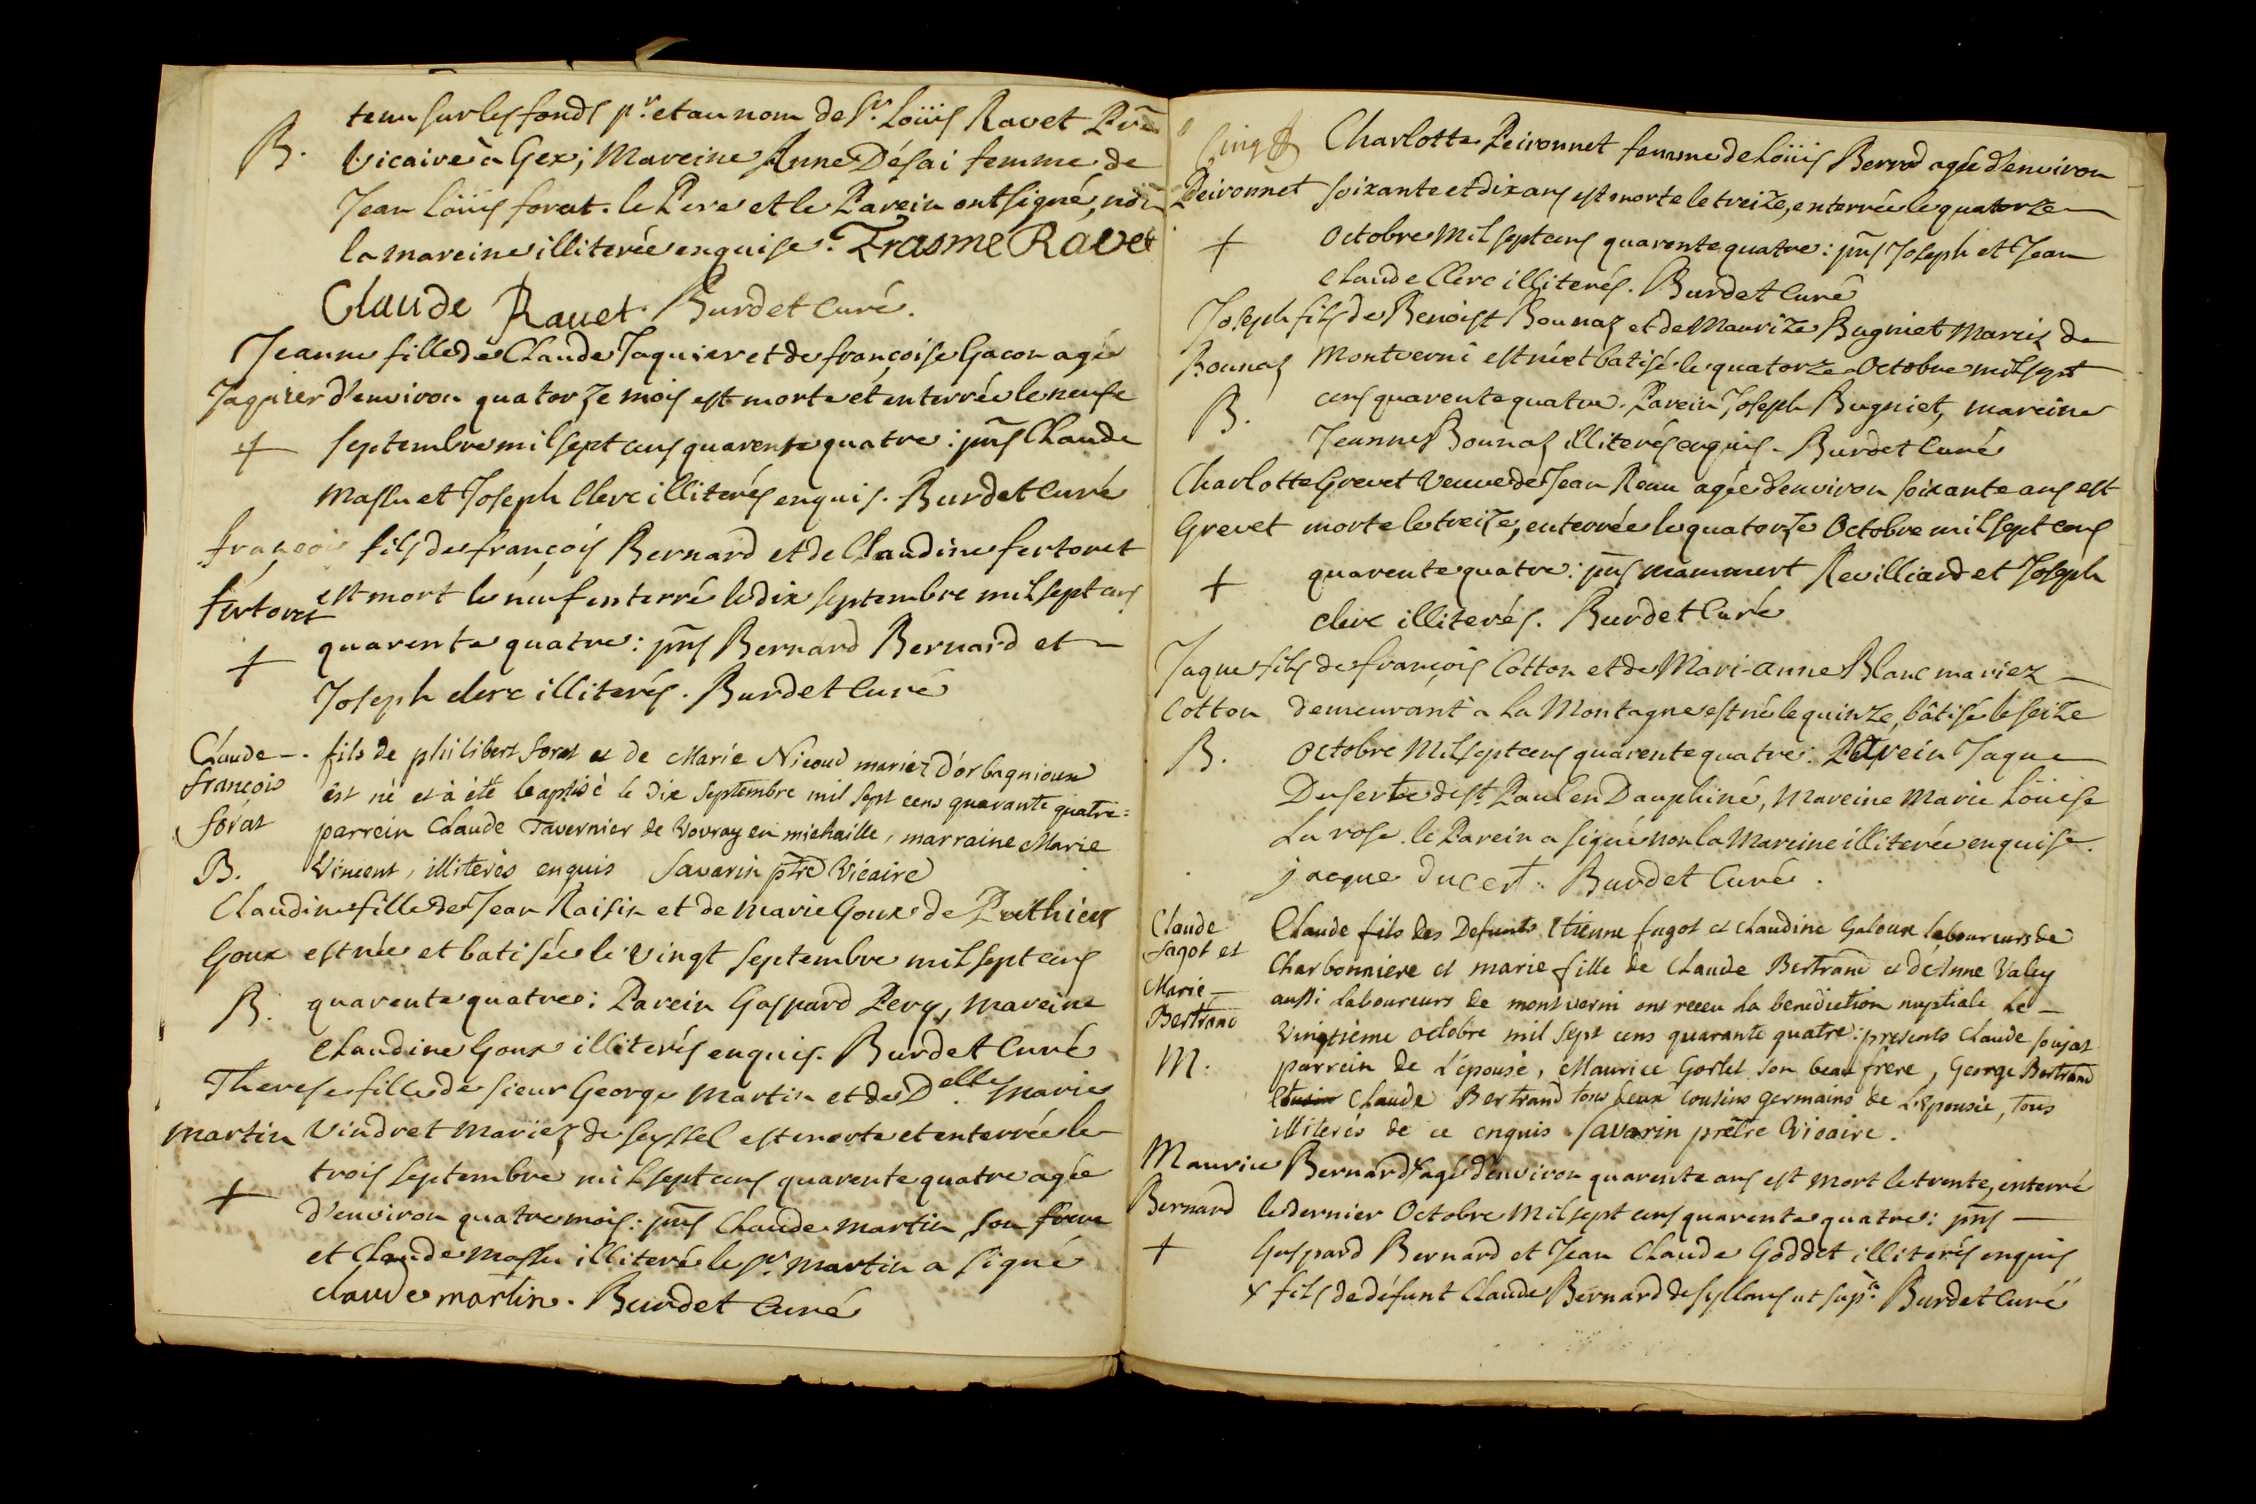 tenu sur les fonds pr. et au nom de Sr. Loüis Ravet Ptre
B. Vicaire à Gex; Mareine Anne Désai femme de
Jean Loüis forat. le Pere et le Parein ont signé, non
la mareine illiterée enquise. Erasme Ravet
Claude Ravet Burdet Curé.
Jeanne fille de Claude Jaquier et de françoise Gacon agée
Jaquier d'environ quatorze mois est morte et enterrée le neufe
+ septembre mil sept cens quarente quatre: pñs Claude
Maslu et Joseph Clerc illiterés enquis. Burdet Curé
françois fils de françois Bernard et de Claudine fertoret
fertoret est mort le neuf enterré le dix septembre mil sept cens
+ quarente quatre: pñs Bernard Bernard et
Joseph clerc illiterés. Burdet Curé
Claude fils de philibert forat et de Marie Nicoud mariéz d'orbagnioux
françois est né et à été baptisé le dix septembre mil sept cens quarante quatre=
forat parrein Claude Tavernier de Vovray en michaille, marraine Marie
B. Vincent, illiterés enquis Savarin ptre Vicaire
Claudine fille de Jean Raisin et de Marie Goux de
Goux est née et batisée le vingt septembre mil sept cens
B. quarente quatre: Parein Gaspard Pery, mareine
Claudine Goux illiterés enquis. Burdet Curé
Therese fille de sieur George Martin et de Delle Marie
Martin Vindret Mariez de Seyssel est morte et enterrée le
trois septembre mil sept cens quarente quatre agée
+ d'environ quatre mois: pñs Claude Martin son frere
et Claude Maslu illiteré le Sr. Martin a signé
claude martin. Burdet Curé
Charlotte Peironnet femme de Loüis Berrod agée d'environ
Peironnet soixante et dix ans est morte le treize, enterrée le quatorze
+ Octobre Mil sept cens quarente quatre: pñs Joseph et Jean
Claude Clerc illiterés. Burdet Curé
Joseph fils de Benoist Bounaz et de Maurize Bugniet Mariez de
Bounaz Montverni est né et batisé le quatorze Octobre mil sept
B. cens quarente quatre. Parein Joseph Bugniet, mareine
Jeanne Bounaz illiterés enquis. Burdet Curé
Charlotte Grevet Veuve de Jean Renu agée d'environ soixante ans est
Grevet morte le treize, enterrée le quatorze Octobre mil sept cens
+ quarente quatre: pñs Mammert Revilliard et Joseph
clerc illiterés. Burdet Curé
Jaque fils de françois Cotton et de Mari-anne Blanc mariez
Cotton demeurant à la Montagne est né le quinze, bâtisé le seize
B. Octobre Mil sept cens quarente quatre: Parein Jaque
Duserte de St. Paul en Dauphiné, Mareine Marie Loüise
La rose. le Parein a signé non la Mareine illiterée enquise.
jacque ducert. Burdet Curé.
Claude Claude fils des Defunts Etienne fagot et Claudine Galoux laboureurs de
fagot et Charbonniere et marie fille de Claude Bertrand et de Anne Valey
Marie aussi laboureurs de montverni ont receu la benediction nuptiale Le
Bertrand Vingtieme octobre mil sept cens quarante quatre: presents Claude soujat
M. parrein de L'épouse, Maurice Gorlet son beau frere, George Bertrand
cousin Claude Bertrand tous deux Cousins germains de L'Epousée, tous
illiterés de ce enquis Savarin prêtre Vicaire.
Maurice Bernard x agé d'environ quarente ans est mort le trente, enterré
Bernard le dernier Octobre Mil sept cens quarente quatre: pñs
+ Gaspard Bernard et Jean Claude Goddet illiterés enquis
x fils de défunt Claude Bernard de Syllans ut supa. Burdet Curé